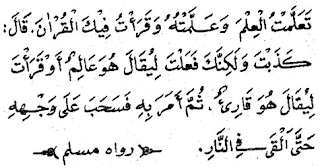 تَعَلَّمْتُ الْعِلْمَ وَعَلَّمْتُهُ وَقَرَأْتُ فِيْكَ الْقُرْاٰنَ، قَالَ:
كَذَبْتَ وَلٰكِنَّكَ فَعَلْتَ لِيُقَالَ هُوَ عَالِمٌ اَوْ قَرَأْتَ
لِيُقَالَ هُوَ قَارِئٌ، ثُمَّ اَمَرَ بِهِ فَسَحَبَ عَلٰى وَجْهِهِ
حَتّٰى اَلْقٰى فِى النَّارِ. رواه مسلم